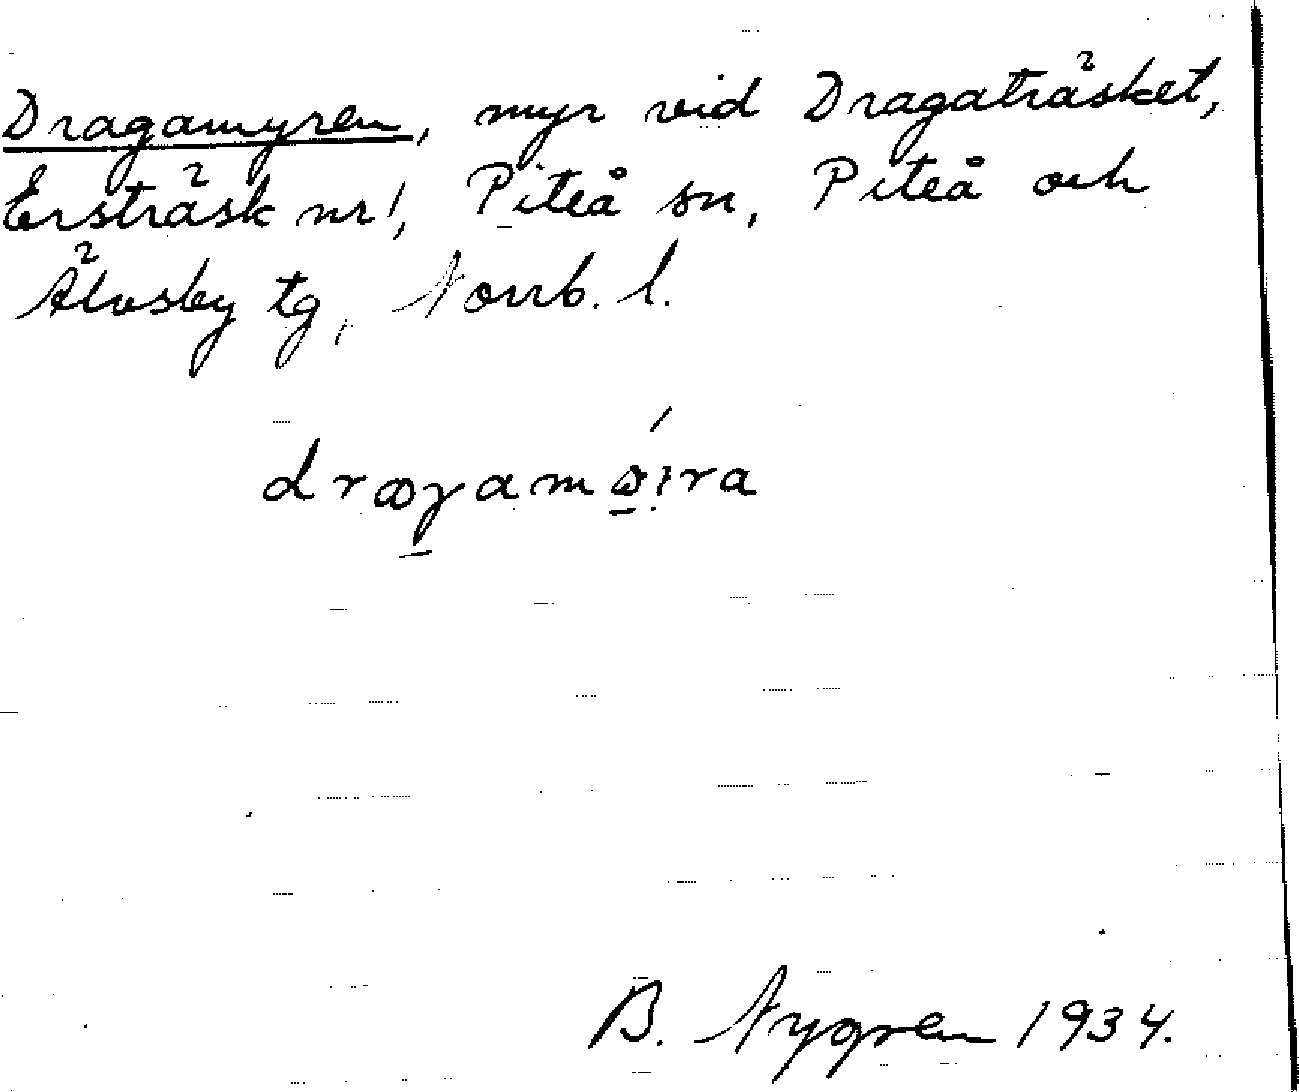 Dragamyren, myr vid Dragaträsket,
Ersträsk nr 1, Piteå sn, Piteå och
Älvsby tg, Norrb. l.
B. Nygren 1934.